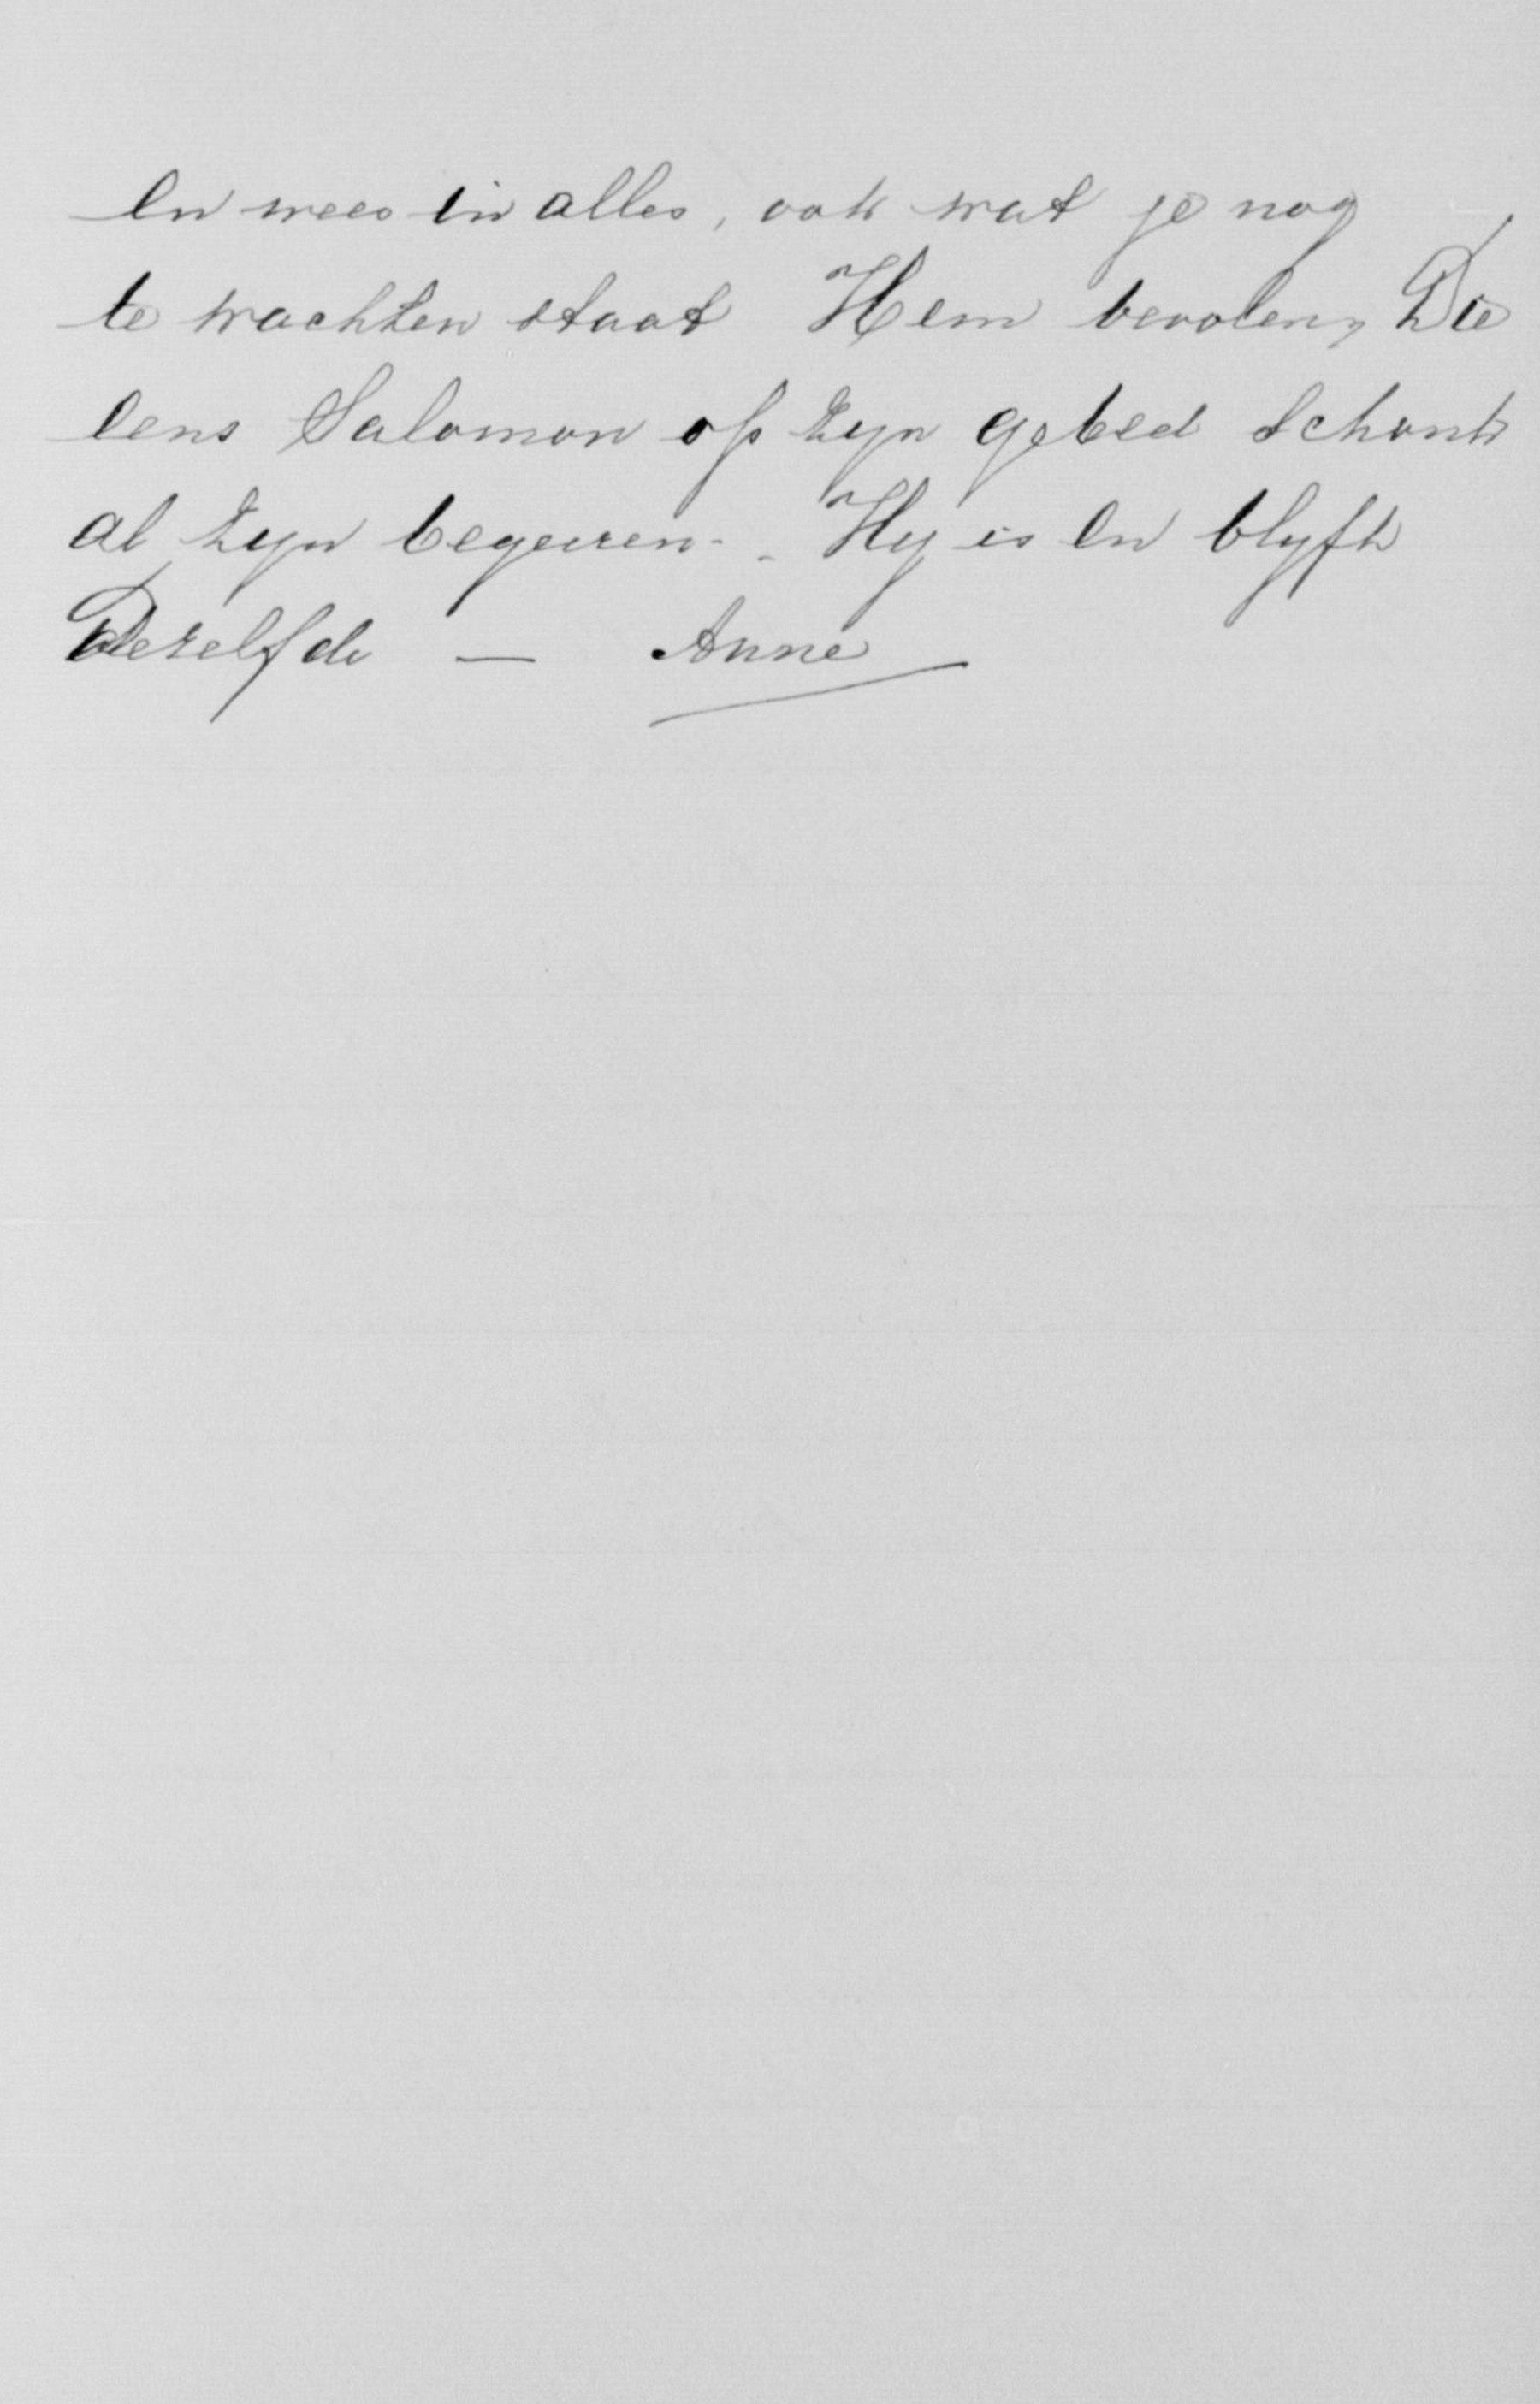 En wees in alles, ook wat je nog
te wachten staat Hem bevolen, Die
eens Salomon op zyn gebed schonk
al zyn begeeren. - Hy is en blyft
Dezelfde — Anne